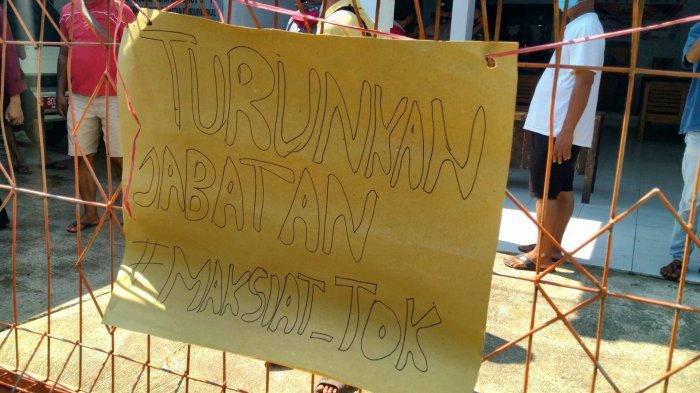 TURUNKAN
JABATAN
#MAKSIAT_TOK